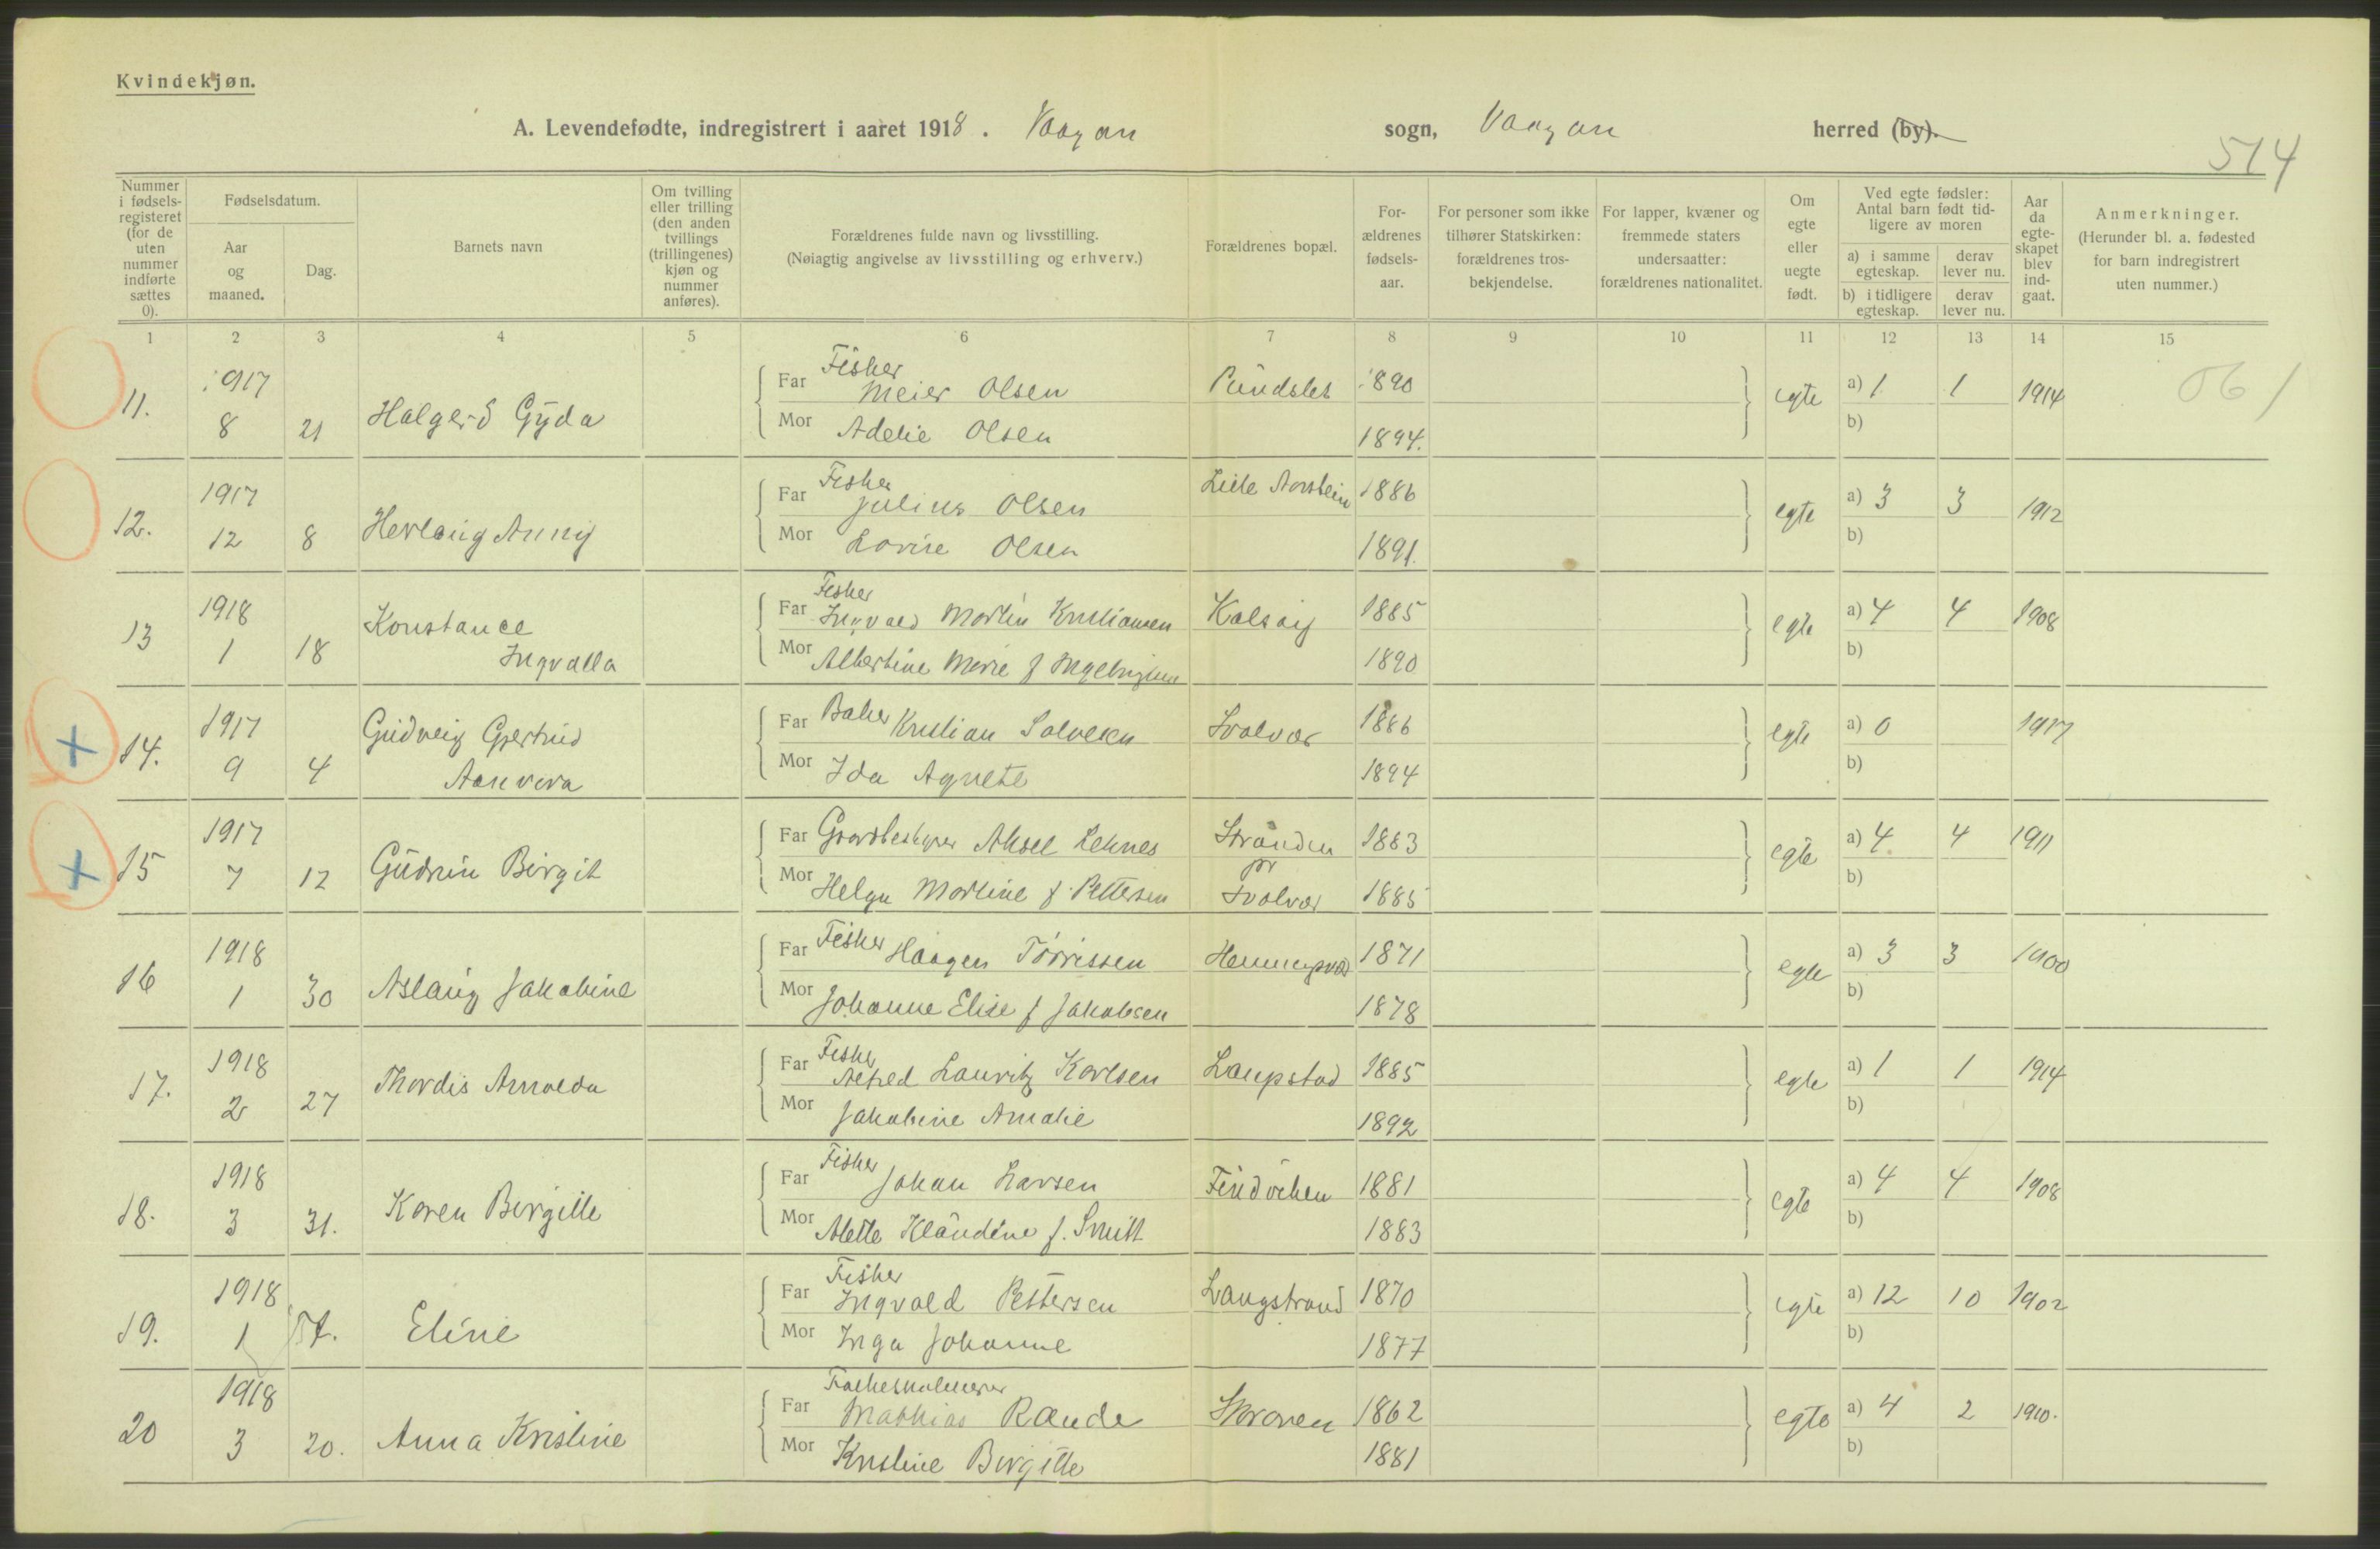 Kvindekjøn.
A. Levendefødte, indregistrert i aaret 1918. Vaagan sogn, Vaagan herred (by).
514
Nummer i fødsels-registeret (for de uten nummer indførte sættes 0).
Fødselsdatum.
Aar og maaned.
Dag.
Barnets navn
Om tvilling eller trilling (den anden tvillings (trillingenes) kjøn og nummer anføres).
Forældrenes fulde navn og livsstilling.
(Nøiagtig angivelse av livsstilling og erhverv.)
Forældrenes bopæl.
For-ældrenes fødsels-aar.
For personer som ikke tilhører Statskirken: forældrenes tros-bekjendelse.
For lapper, kvæner og fremmede staters undersaatter: forældrenes nationalitet.
Om egte eller uegte født.
Ved egte fødsler: Antal barn født tid-ligere av moren
a) i samme egteskap.
derav lever nu.
b) i tidligere egteskap.
derav lever nu.
Aar da egte-skapet blev ind-gaat.
Anmerkninger.
(Herunder bl. a. fødested for barn indregistrert uten nummer.)
1 2 3 4 5 6 7 8 9 10 11 12 13 14 15
Fisker
11. 1917 Far Meier Olsen Pundslet 1890 egte a) 1 1 1914
8 21 Halgerd Gyda Mor Adelie Olsen 1894. b)
Fisker
12. 1917 Far Julius Olsen Lille 1886 egte a) 3 3 1912
12 8 Herlaug Anny Mor Lovise Olsen 1891. b)
Fisker
13 1918 Konstance Far Ingvald Martin Kristiansen Kalsøy 1885 egte a) 4 4 1908
1 18 Ingvalla Mor Albertine Marie f Ingebrigtsen 1890 b)
14. 1917 Gudveig Gjertrud Far Baker Kristian Salvesen Svolvær 1886 egte a) 0 1917
9 4 Aasevera Mor Ida Agnete 1894 b)
15 1917 Far Gaardbestyrer Aksel Leknes Stranden 1883 egte a) 4 4 1911
pr
7 12 Gudrun Birgit Mor Helga Martine f. Pettersen Svolvær 1885 b)
16 1918 Far Fisker Haagen Tørrissen Henningsvær 1871 egte a) 3 3 1900
1 30 Aslaug Jakobine Mor Johanne Elise f Jakobsen 1878 b)
Fisker
17. 1918 Far Alfred Lauritz Karlsen Laupstad 1885 egte a) 1 1 1914
2 27 Thordis Arnolda Mor Jakobine Amalie 1892 b)
Fisker
18. 1918 Far Johan Larsen 1881 egte a) 4 4 1908
3 31. Karen Bergitte Mor Alette Klaudine f. Smitt 1883 b)
Fisker
19. 1918 Far Ingvald Pettersen Langstrand 1870 egte a) 12 10 1902
1 Eline Mor Inga Johanne 1877 b)
20 1918 Far Mathias Rande Skroven 1862 egte a) 4 2 1910.
3 20. Anna Kristine Mor Kristine Birgitte 1881 b)